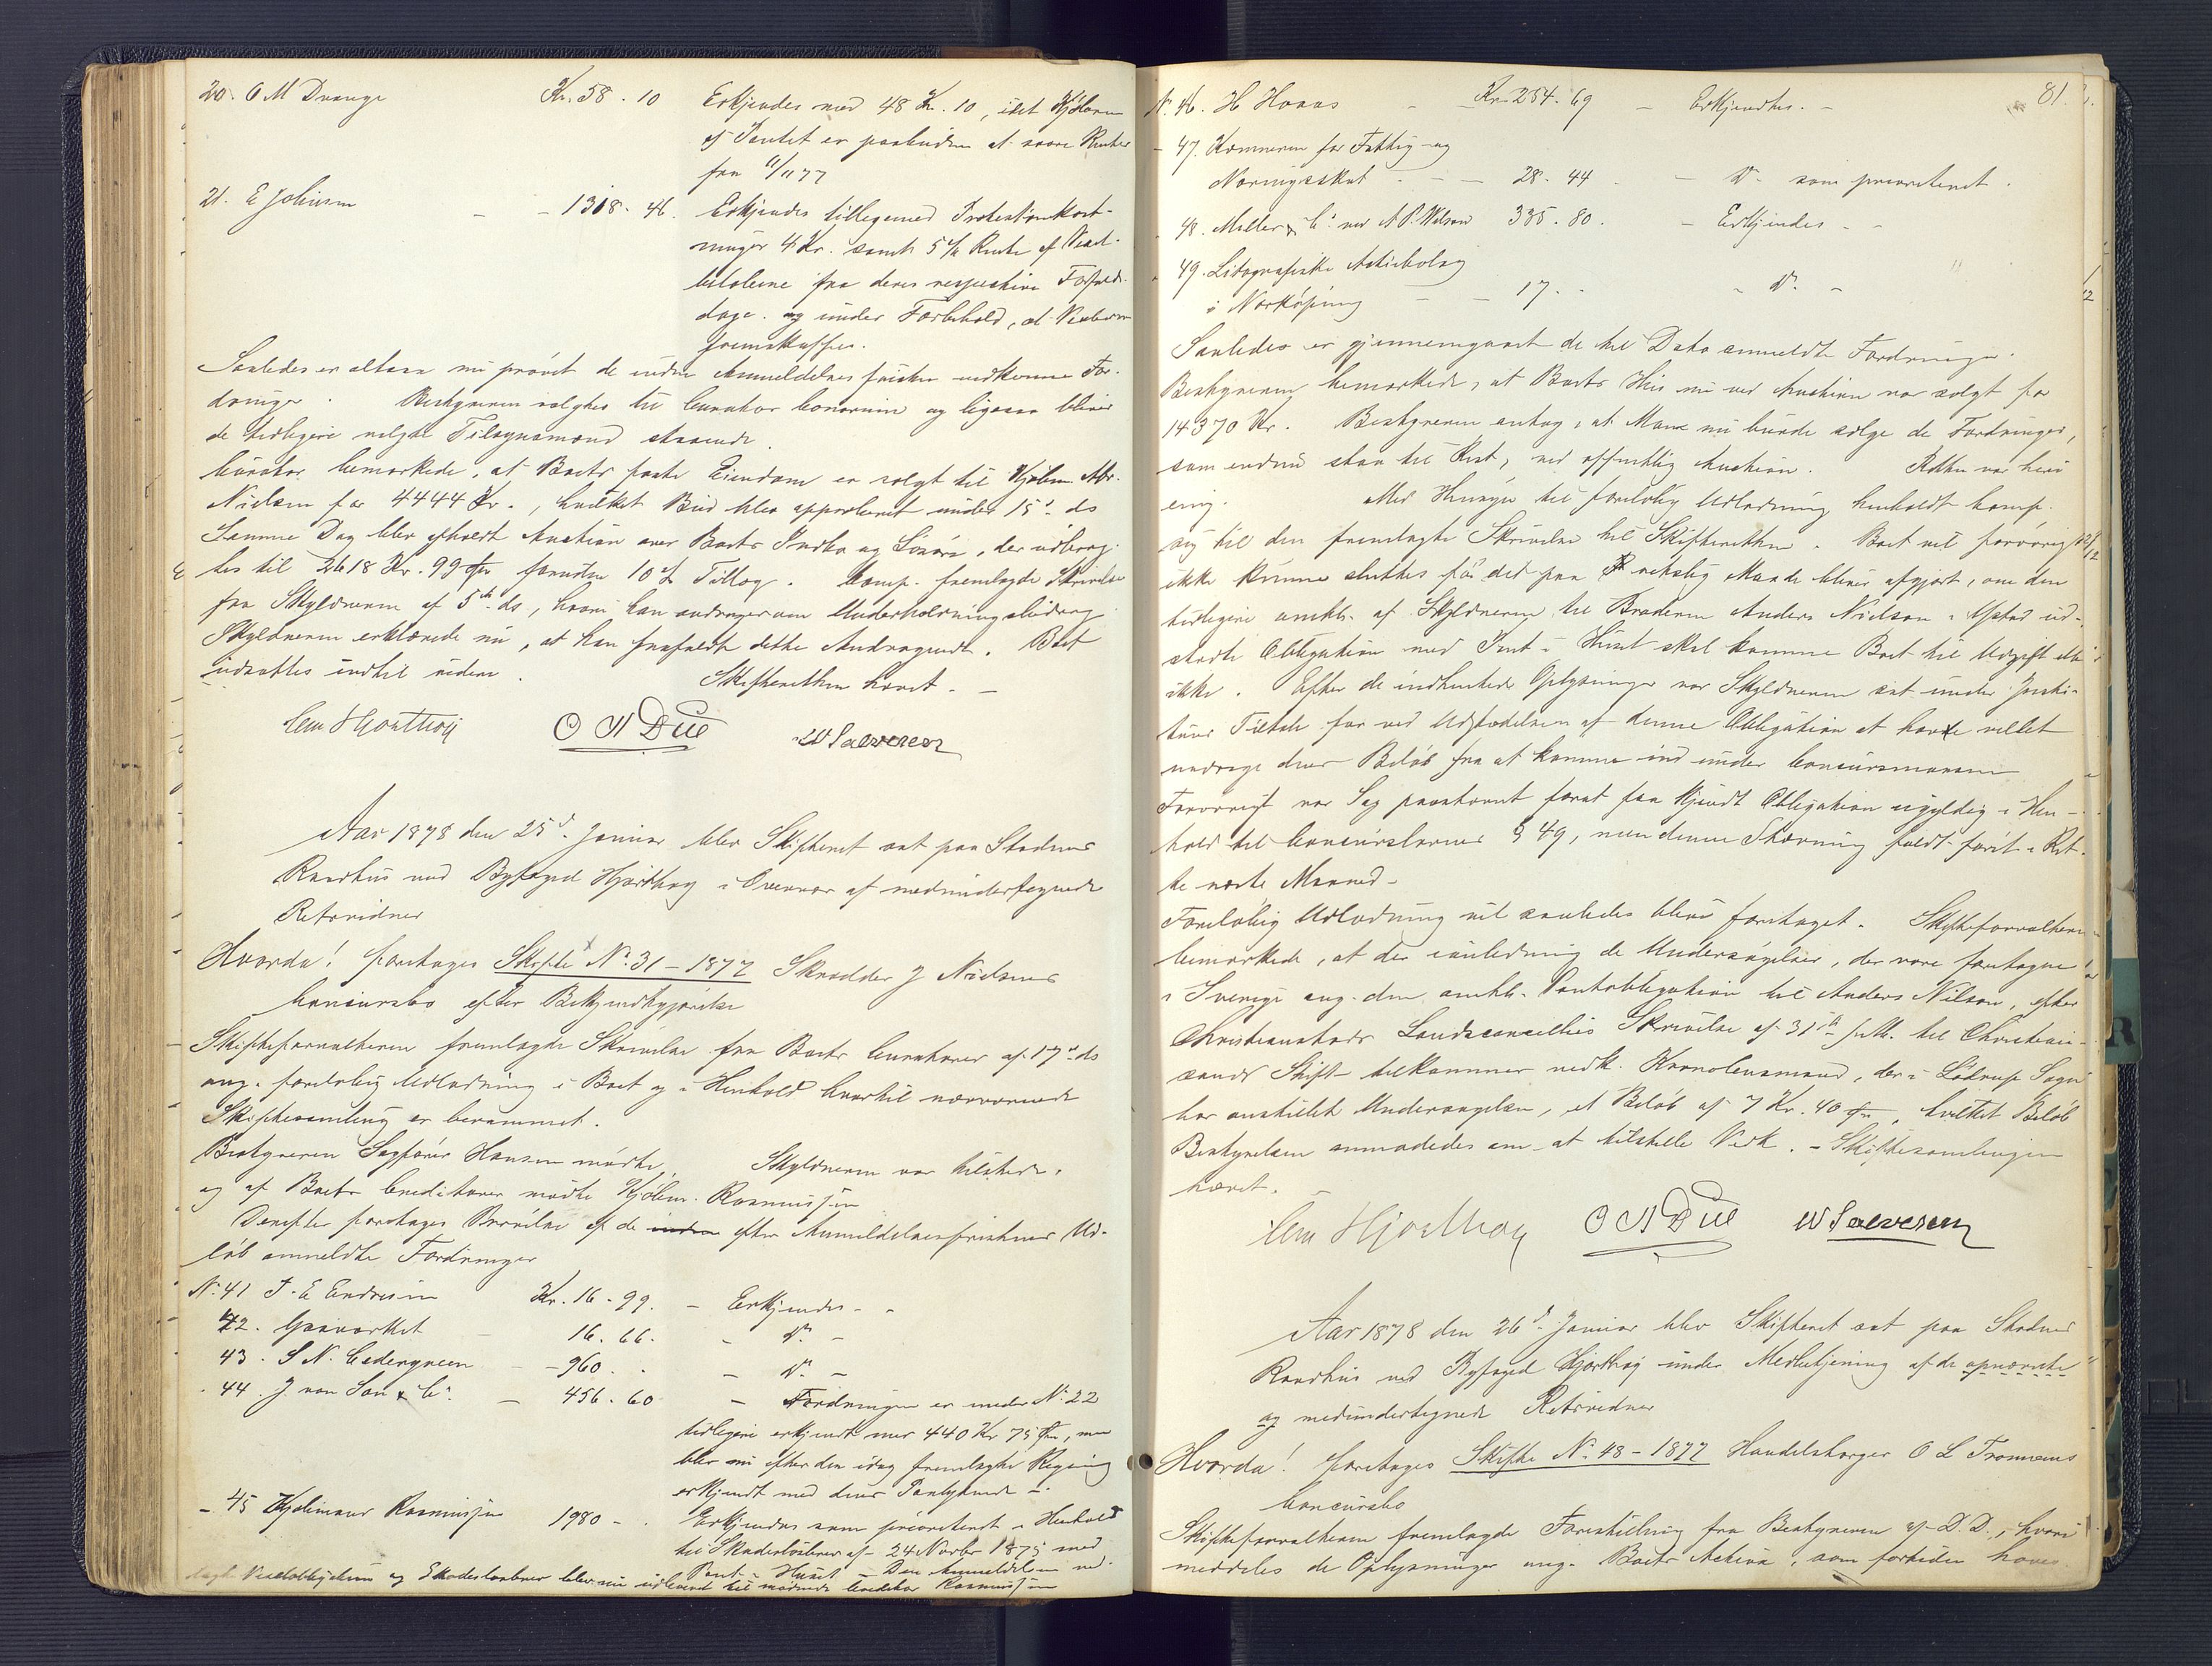 20. O M Drange Kr. 58. 10 Erkjendes med 48 Kr. 10, idet Kjøberen
af Pantet er paabuden at svare Renter
fra 11/11 77
21. E Johnsen - - 1318. 46. Erkjendes tillegemed Protestomkost-
ninger 4 Kr. samt 5 % Rente af Vexel-
beløbene fra deres respective Forfalds-
dage. og under Forbehold, at Vexlerne
fremskaffes.
Saaledes er altsaa nu prøvet de inden Anmeldelsesfristen indkomne For-
dringer. Bestyreren valgtes til Curator bonorum og ligesaa bliver
de tidligere valgte Tilsynsmænd staaende.
Curator bemærkede, at Boets faste Eiendom er solgt til Kjøbm. Abr.
Nielsen for 4444 Kr., hvilket Bud blev approberet under 15de ds
Samme Dag blev afholdt Auction over Boets Indbo og Løsøre, der udbrag-
tes til 2618 Kr. 99 Øre foruden 10 % Tillæg. Comp. fremlagde Skrivelse
fra Skyldneren af 5te ds, hvori han andrager om Underholdningsbidrag
Skyldneren erklærede nu, at han frafaldt dette Andragende. Boet
udsættes indtil videre. Skifteretten hævet. -
Chr Hjorthøy O N Due W Salvesen
Aar 1878 den 25de Januar blev Skifteret sat paa Stadens
Raadhus ved Byfoged Hjorthøy i Overvær af medundertegnede
Retsvidner
Hvorda! foretages Skifte No 31 - 1877 Skrædder J Nielsens
Concursbo efter Bekjendtgjørelse
Skifteforvalteren fremlagde Skrivelse fra Boets Curatorer af 17de ds
ang. foreløbig Udlodning i Boet og i Henhold hvortil nærværende
Skiftesamling er berammet.
Bestyreren Sagfører Hansen mødte. Skyldneren var tilstede,
og af Boets Creditorer mødte Kjøbm. Rasmussen
Derefter foretages Prøvelse af de efter Anmeldelsesfristens Ud-
løb anmeldte Fordringer
No 41 T. E Endresen Kr. 16. 99. - Erkjendes - -
42. Gasværket - 16. 66. - Do -
43. S N. Cedergreen - - 960. - - Do -
44. J. von Son & Co. - 456. 60 - Fordringen er under No 22
tidligere erkjendt med 440 Kr 75 Øre, men
blev nu efter den idag fremlagte Regning
erkjendt med dens Paalydende -.
- 45 Kjøbmand Rasmussen 1980 - . Erkjendes som prioriteret i Henhold
til Skadesløsbrev af 24 Novbr 1875 med
Pant i Huset - Den Anmeldelsen ved-
lagte Vexelobligation og Skadesløsbrev blev nu udleveret til mødende Creditor Rasmussen
81.
No 46. H Haaas - Kr. 254. 69 - Erkjendtes. -
- 47. Kæmneren for Fattig- og
Næringsskat - - - 28. 44 - - Do - som prioriteret.
- 48. Møller & Co. ved A P. Wilson 335. 80. - Erkjendes - -
- 49. Litografiska Actiebolag
i Norköping - - 17. - - Do. -
Saaledes er gjennemgaaet de til Dato anmeldte Fordringer.
Bestyreren bemærkede, at Boets Hus nu ved Auction var solgt for
14370 Kr. Bestyreren antog, at Man nu burde sælge de Fordringer,
som endnu staa til Rest, ved offentlig Auction. Retten var heri
enig. Med Hensyn til foreløbig Udlodning henholdt Comp.
sig til den fremlagte Skrivelse til Skifteretten. Boet vil forøvrigt
ikke kunne sluttes før det paa retslig Maade bliver afgjort, om den
tidligere omhdl. af Skyldneren til Broderen Anders Nielsen i Ystad ud-
stedte Obligation med Pant i Huset skal komme Boet til Udgift eller
ikke. Efter de indhentede Oplysninger var Skyldneren sat under Justi-
tiens Tiltale for ved Udstedelsen af denne Obligation at have villet
unddrage dens Beløb fra at komme ind under Concursmassen
Forøvrigt var Sag paastevnt forat faa kjendt Obligation ugyldig i Hen-
hold til Concurslovens § 49, men denne Stævning faldt først i Ret-
te næste Maaned -
Foreløbig Udlodning vil saaledes blive foretaget. Skifteforvalteren
bemærkede, at der i anledning de Undersøgelser, der vare foretagne
i Sverige ang. den omhdl. Pantobligation til Anders Nilson, efter
Christianstads Landscancellies Skrivelse af 31te f. M. til Christian-
sands Skift tilkommer vedk. Kronolensmand, der i Löderup Sogn
har anstillet Undersøgelsen, et Beløb af 7 Kr. 40 Øre, hvilket Beløb
Bestyrelsen anmodedes om at tilstille Vedk. - Skiftesamlingen
hævet.
Chr Hjorthøy O N Due W Salvesen
Aar 1878 den 26de Januar blev Skifteret sat paa Stadens
Raadhus ved Byfoged Hjorthøy under Medbetjening af de opnævnte
og medundertegnede Retsvidner
Hvorda! foretages Skifte No. 48 - 1877 Handelsborger O L Tromæns
Concursbo
Skifteforvalteren fremlagde Forestilling fra Bestyreren af D. D., hvori
meddeles de Oplysninger ang. Boets Activa, som fortiden haves.